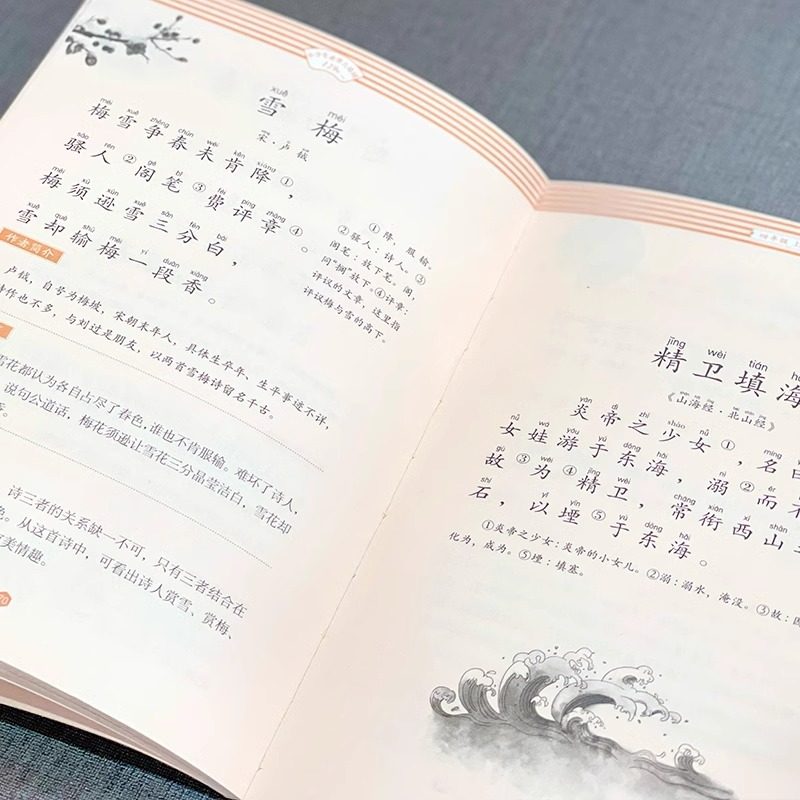 xuě méi
雪 梅
宋·卢钺
méi xuě zhēng chūn wèi kěn xiáng
梅雪争春未肯降①，
sāo rén gē bǐ fèi píng zhāng
骚人②阁笔③费评章④。
méi xū xùn xuě sān fēn bái
梅须逊雪三分白，
xuě què shū méi yí duàn xiāng
雪却输梅一段香。
①降，服输。
②骚人：诗人。③
阁笔：放下笔。阁，
同“搁”放下。④评章：
评议的文章，这里指
评议梅与雪的高下。
作者简介
卢钺，自号为梅坡，宋朝末年人，具体生卒年、生平事迹不详，
诗作也不多，与刘过是朋友，以两首雪梅诗留名千古。
雪花都认为各自占尽了春色，谁也不肯服输。难坏了诗人，
说句公道话，梅花须逊让雪花三分晶莹洁白，雪花却
诗三者的关系缺一不可，只有三者结合在
色。从这首诗中，可看出诗人赏雪、赏梅、
美情趣。
70
四年级
jīng wèi tián
精卫填海
《山海经·北山经》
yán dì zhī shào nǚ
炎帝之少女①，名曰
nǚ wá yóu yú dōng hǎi nì ér
女娃游于东海，溺②而
gù wéi jīng wèi cháng xián xī shān
故③为④精卫，常衔西山
shí yǐ yīn yú dōng hǎi
石，以堙⑤于东海。
①炎帝之少女：炎帝的小女儿。②溺：溺水，淹没。③故：因
化为，成为。⑤堙：填塞。